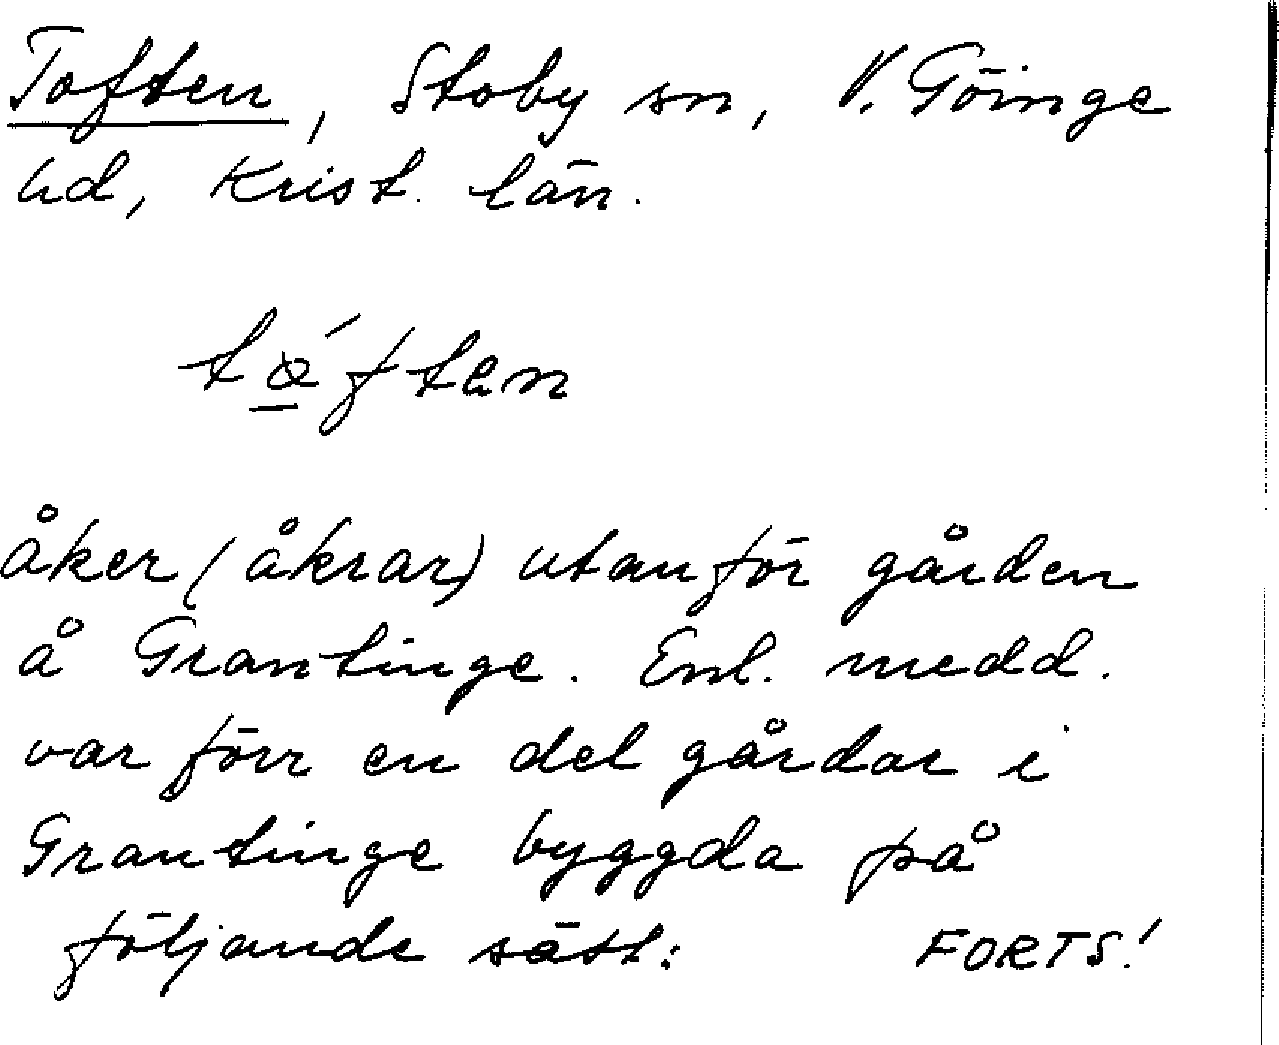 Toften, Stoby sn, V. Göinge
hd, Krist. län.
tǿften
åker (åkrar) utanför gården
å Grantinge. Enl. medd.
var förr en del gårdar i
Grantinge byggda på
följande sätt: FORTS!